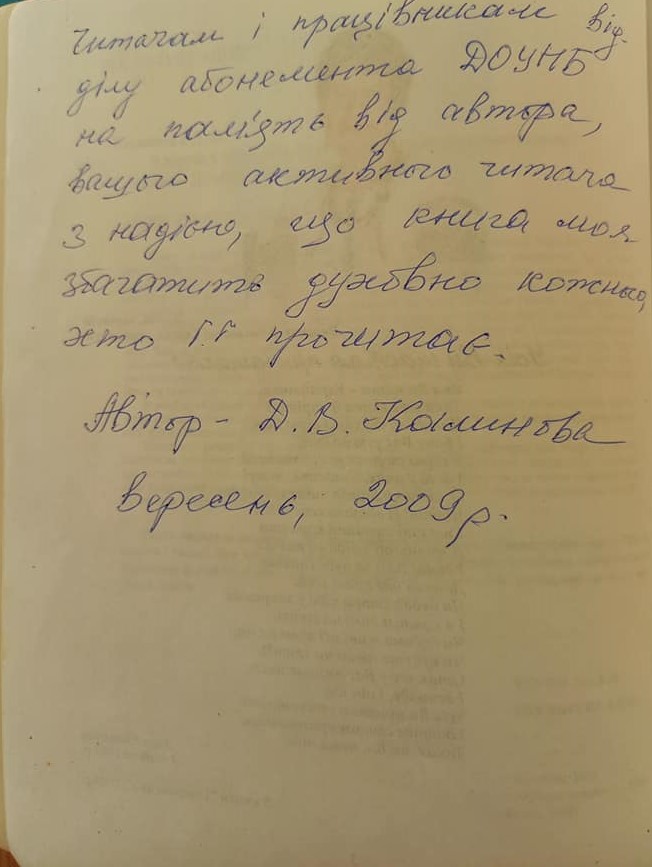 Читачам і працівникам від-
ділу абонемента ДОУНБ
на пам'ять від автора,
вашого активного читача
з надією, що книга моя
збагатить духовно кожного,
хто її прочитає.
Автор - Д.В. Калинова
вересень, 2009 р.